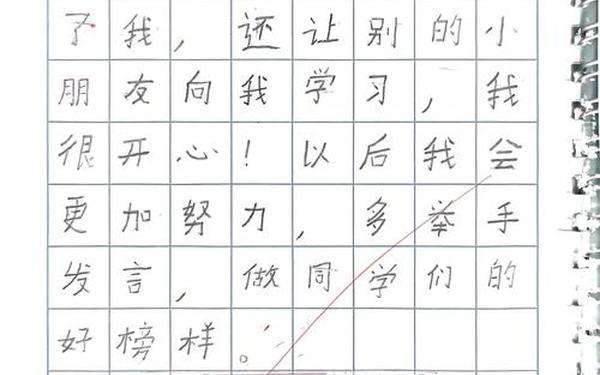 了我，还让别的小
朋友向我学习，我
很开心！以后我会
更加努力，多举手
发言，做同学们的
好榜样。